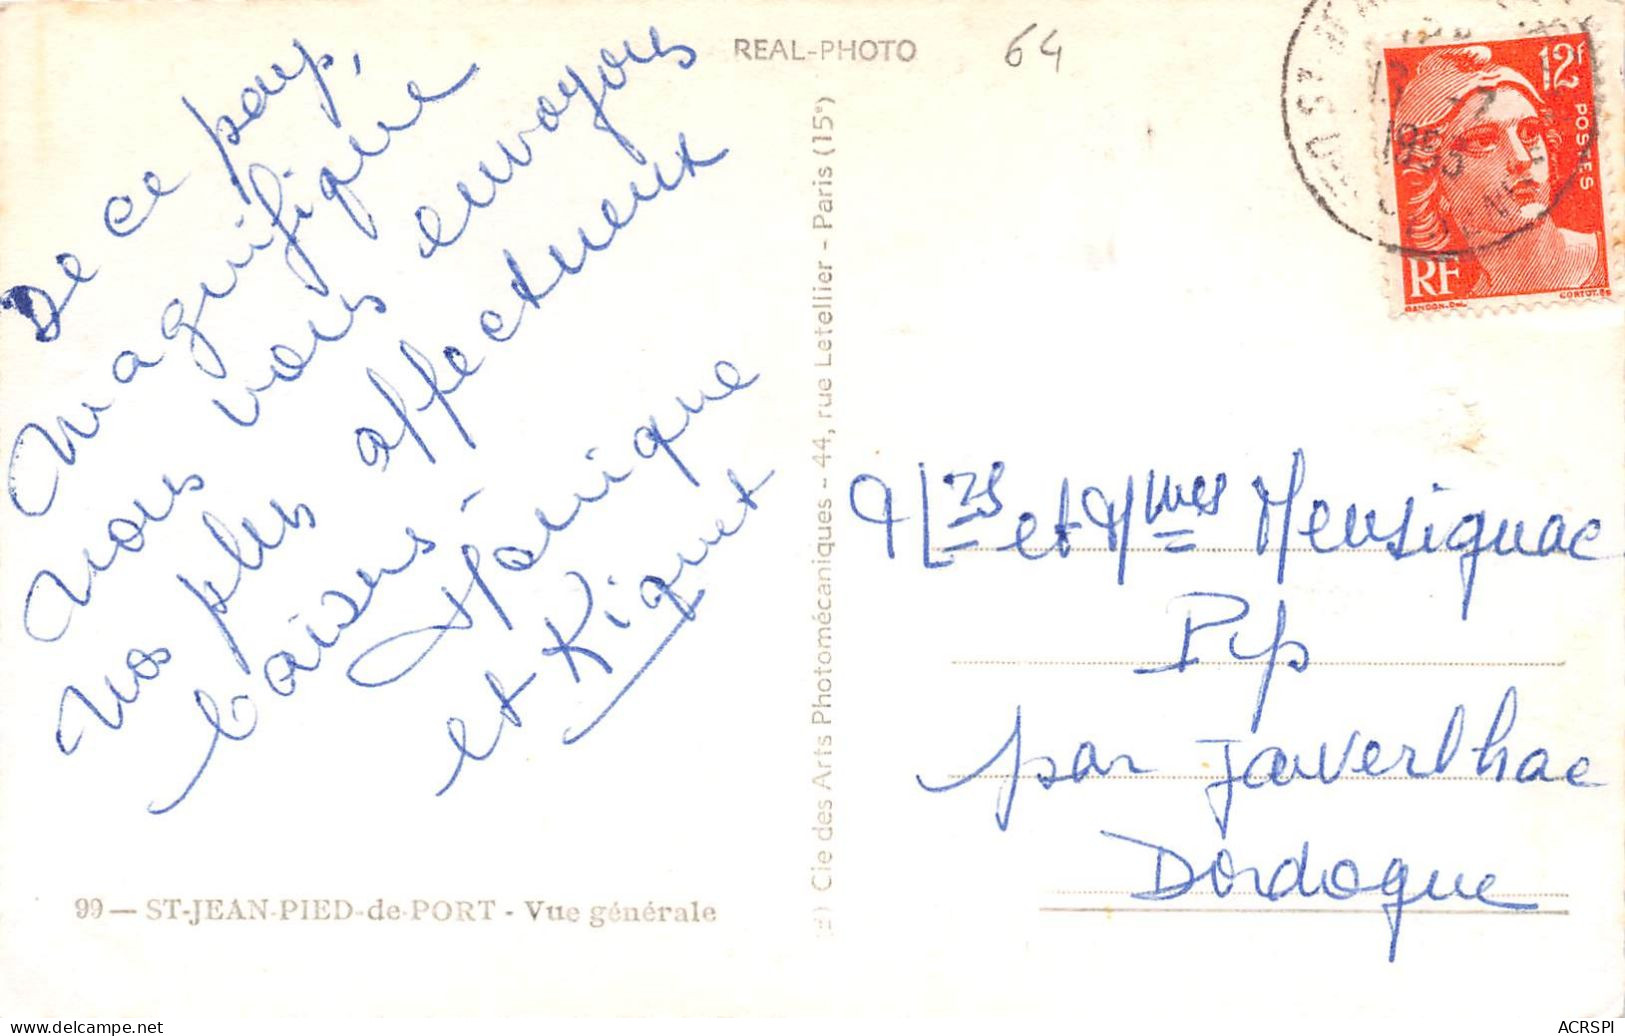 REAL-PHOTO
64
De ce pays,
magnifique
nous vous envoyons
nos plus affectueux
baisers.
et Riquet
99 — ST-JEAN-PIED-de-PORT - Vue générale
Cie des Arts Photomécaniques - 44, rue Letellier - Paris (15e)
12f
POSTES
RF
GANDON.DEL
CORTOT.SC
1953
et Mmes Mensignac
Pip
par Javerlhac
Dordogne
ACRSPI